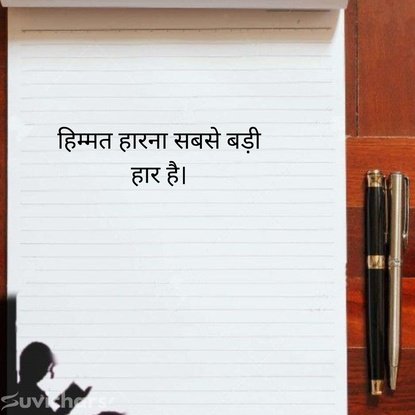 हिम्मत हारना सबसे बड़ी
हार है।
Suvichars